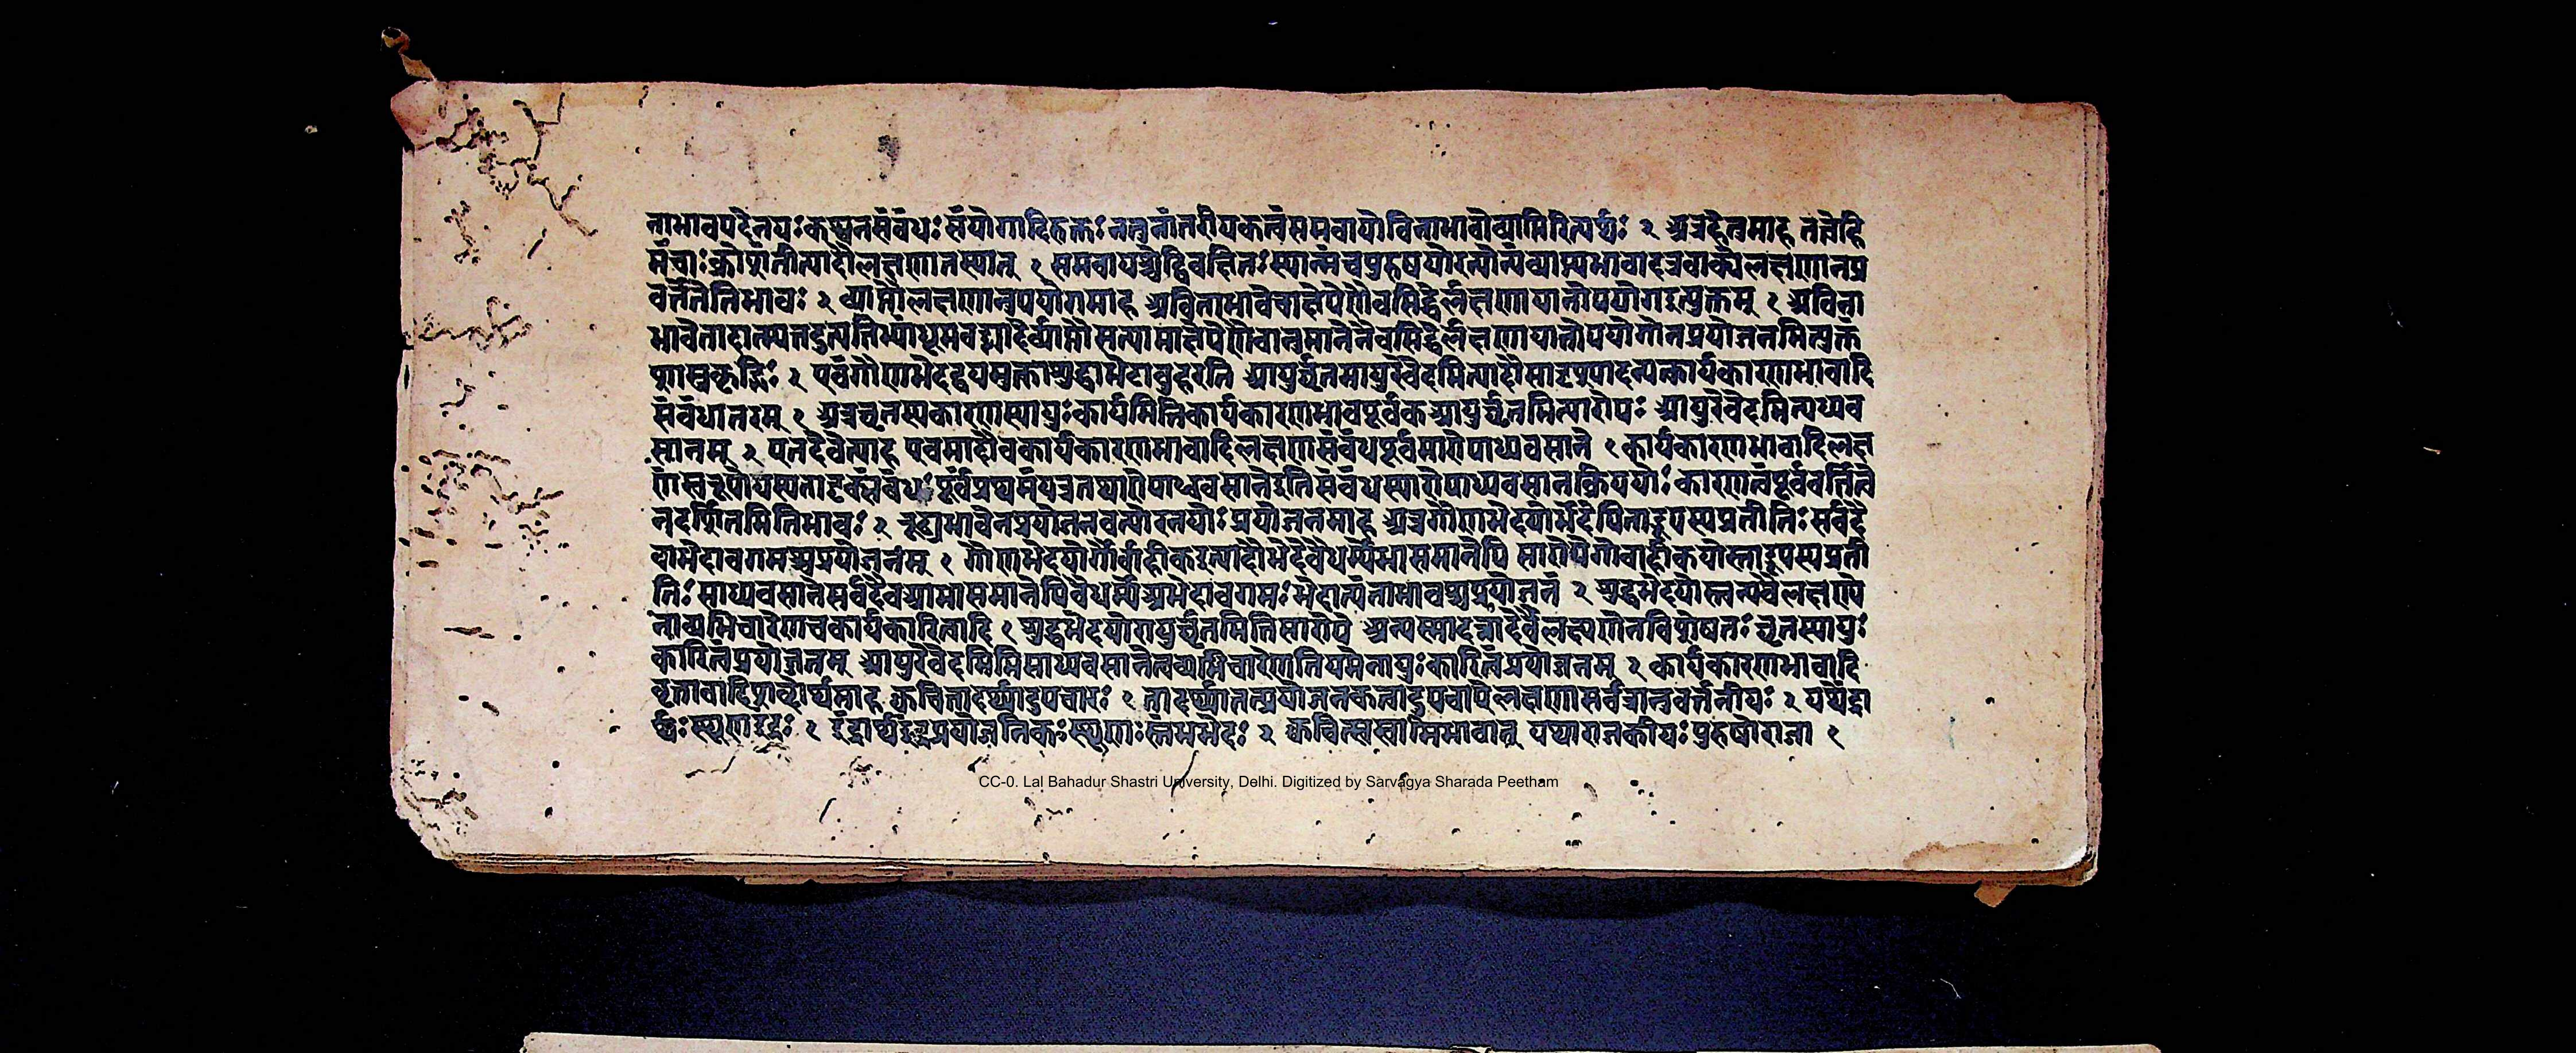 नाभावपदेनयः कश्चनसंबंधः संयोगादिरुक्तः नतुनांतरीयकत्वंसमवायोविनाभावोव्याप्तिरित्यर्थः २ अत्रहेतुमाह तत्त्वेहि
मंचाः क्रोशंतीत्यादौलक्षणानस्यात् १ समवायश्चेद्विवक्षितः स्यान्मंचपुरुषयोरन्योन्यंव्याप्त्यभावादत्रवाक्येलक्षणानप्र
वर्त्तेतेतिभावः २ व्याप्तौलक्षणानुपयोगमाह अविनाभावेचाक्षेपेणैवसिद्धेर्लक्षणायानोपयोगइत्युक्तम् १ अविना
भावेतादात्म्यतदुत्पत्तिभ्यांधूमवह्न्यादेर्व्याप्तौसत्यामाक्षेपेणैवानुमानेनैवसिद्धेर्लक्षणायानोपयोगोनप्रयोजनमित्युक्तं
शास्त्रकृद्भिः २ एवंगौणभेदद्वयमुक्ताशुद्धाभेदावुदाहरति आयुर्घृतमायुरेवेदमित्यादौसादृश्यादन्यत्कार्यकारणभावादि
संबंधान्तरम् १ अत्रघृतस्यकारणस्यायुः कार्यमितिकार्यकारणभावपूर्वकआयुर्घृतमित्यारोपः आयुरेवेदमित्यध्यव
सानम् २ एतदेवेत्याह एवमादौचकार्यकारणभावादिलक्षणसंबंधपूर्वमारोपाध्यवसाने १ कार्यकारणभावादिलक्ष
णंस्वरूपोयस्यतादृक्संबंधः पूर्वंप्रथमंयत्रतथारोपाध्यवसानेइतिसंबंधस्यारोपाध्यवसानक्रिययोः कारणत्वंपूर्ववर्त्तित्वे
नदर्शितमितिभावः २ रूढाभावेनप्रयोजनवत्योरनयोः प्रयोजनमाह अत्रगौणभेदयोर्भेदेपिताद्रूप्यस्यप्रतीतिः सर्वदै
वाभेदावगमश्चप्रयोजनंम् १ गौणभेदयोर्गौर्वाहीकइत्यादौभेदेवैधर्म्येभासमानेपि सारोपेगोवाहीकयोस्ताद्रूप्यस्यप्रती
तिः साध्यवसानेसर्वदैवआभासमानेपिवैधर्म्येअभेदावगमः भेदात्यंताभावश्चप्रयोजनं २ शुद्धभेदयोस्त्वन्यवैलक्षण्ये
नाव्यभिचारेणचकार्यकारित्वादि १ शुद्धभेदयोरायुर्घृतमितिसारोपे अन्यस्मादन्नादेर्वैलक्षण्येनविशेषतः घृतस्यायुः
कारित्वंप्रयोजनम् आयुरेवेदमितिसाध्यवसानेत्वव्यभिचारेणनियमेनायुः कारित्वंप्रयोजनम् २ कार्यकारणभावादि
वृत्तावादिशब्दार्थमाह क्वचित्तादर्थ्यादुपचारः १ तादर्थ्यात्तत्प्रयोजनकत्वादुपचारोलक्षणासर्वत्रानुवर्त्तनीयः २ यथेंद्रा
र्थाः स्थूणाइंद्रः १ इंद्रार्थाइंद्रप्रयोजनिकः स्थूणाः स्तंभभेदः २ क्वचित्स्वस्वामिभावात् यथाराजकीयः पुरुषोराजा १
CC-0. Lal Bahadur Shastri University, Delhi. Digitized by Sarvagya Sharada Peetham